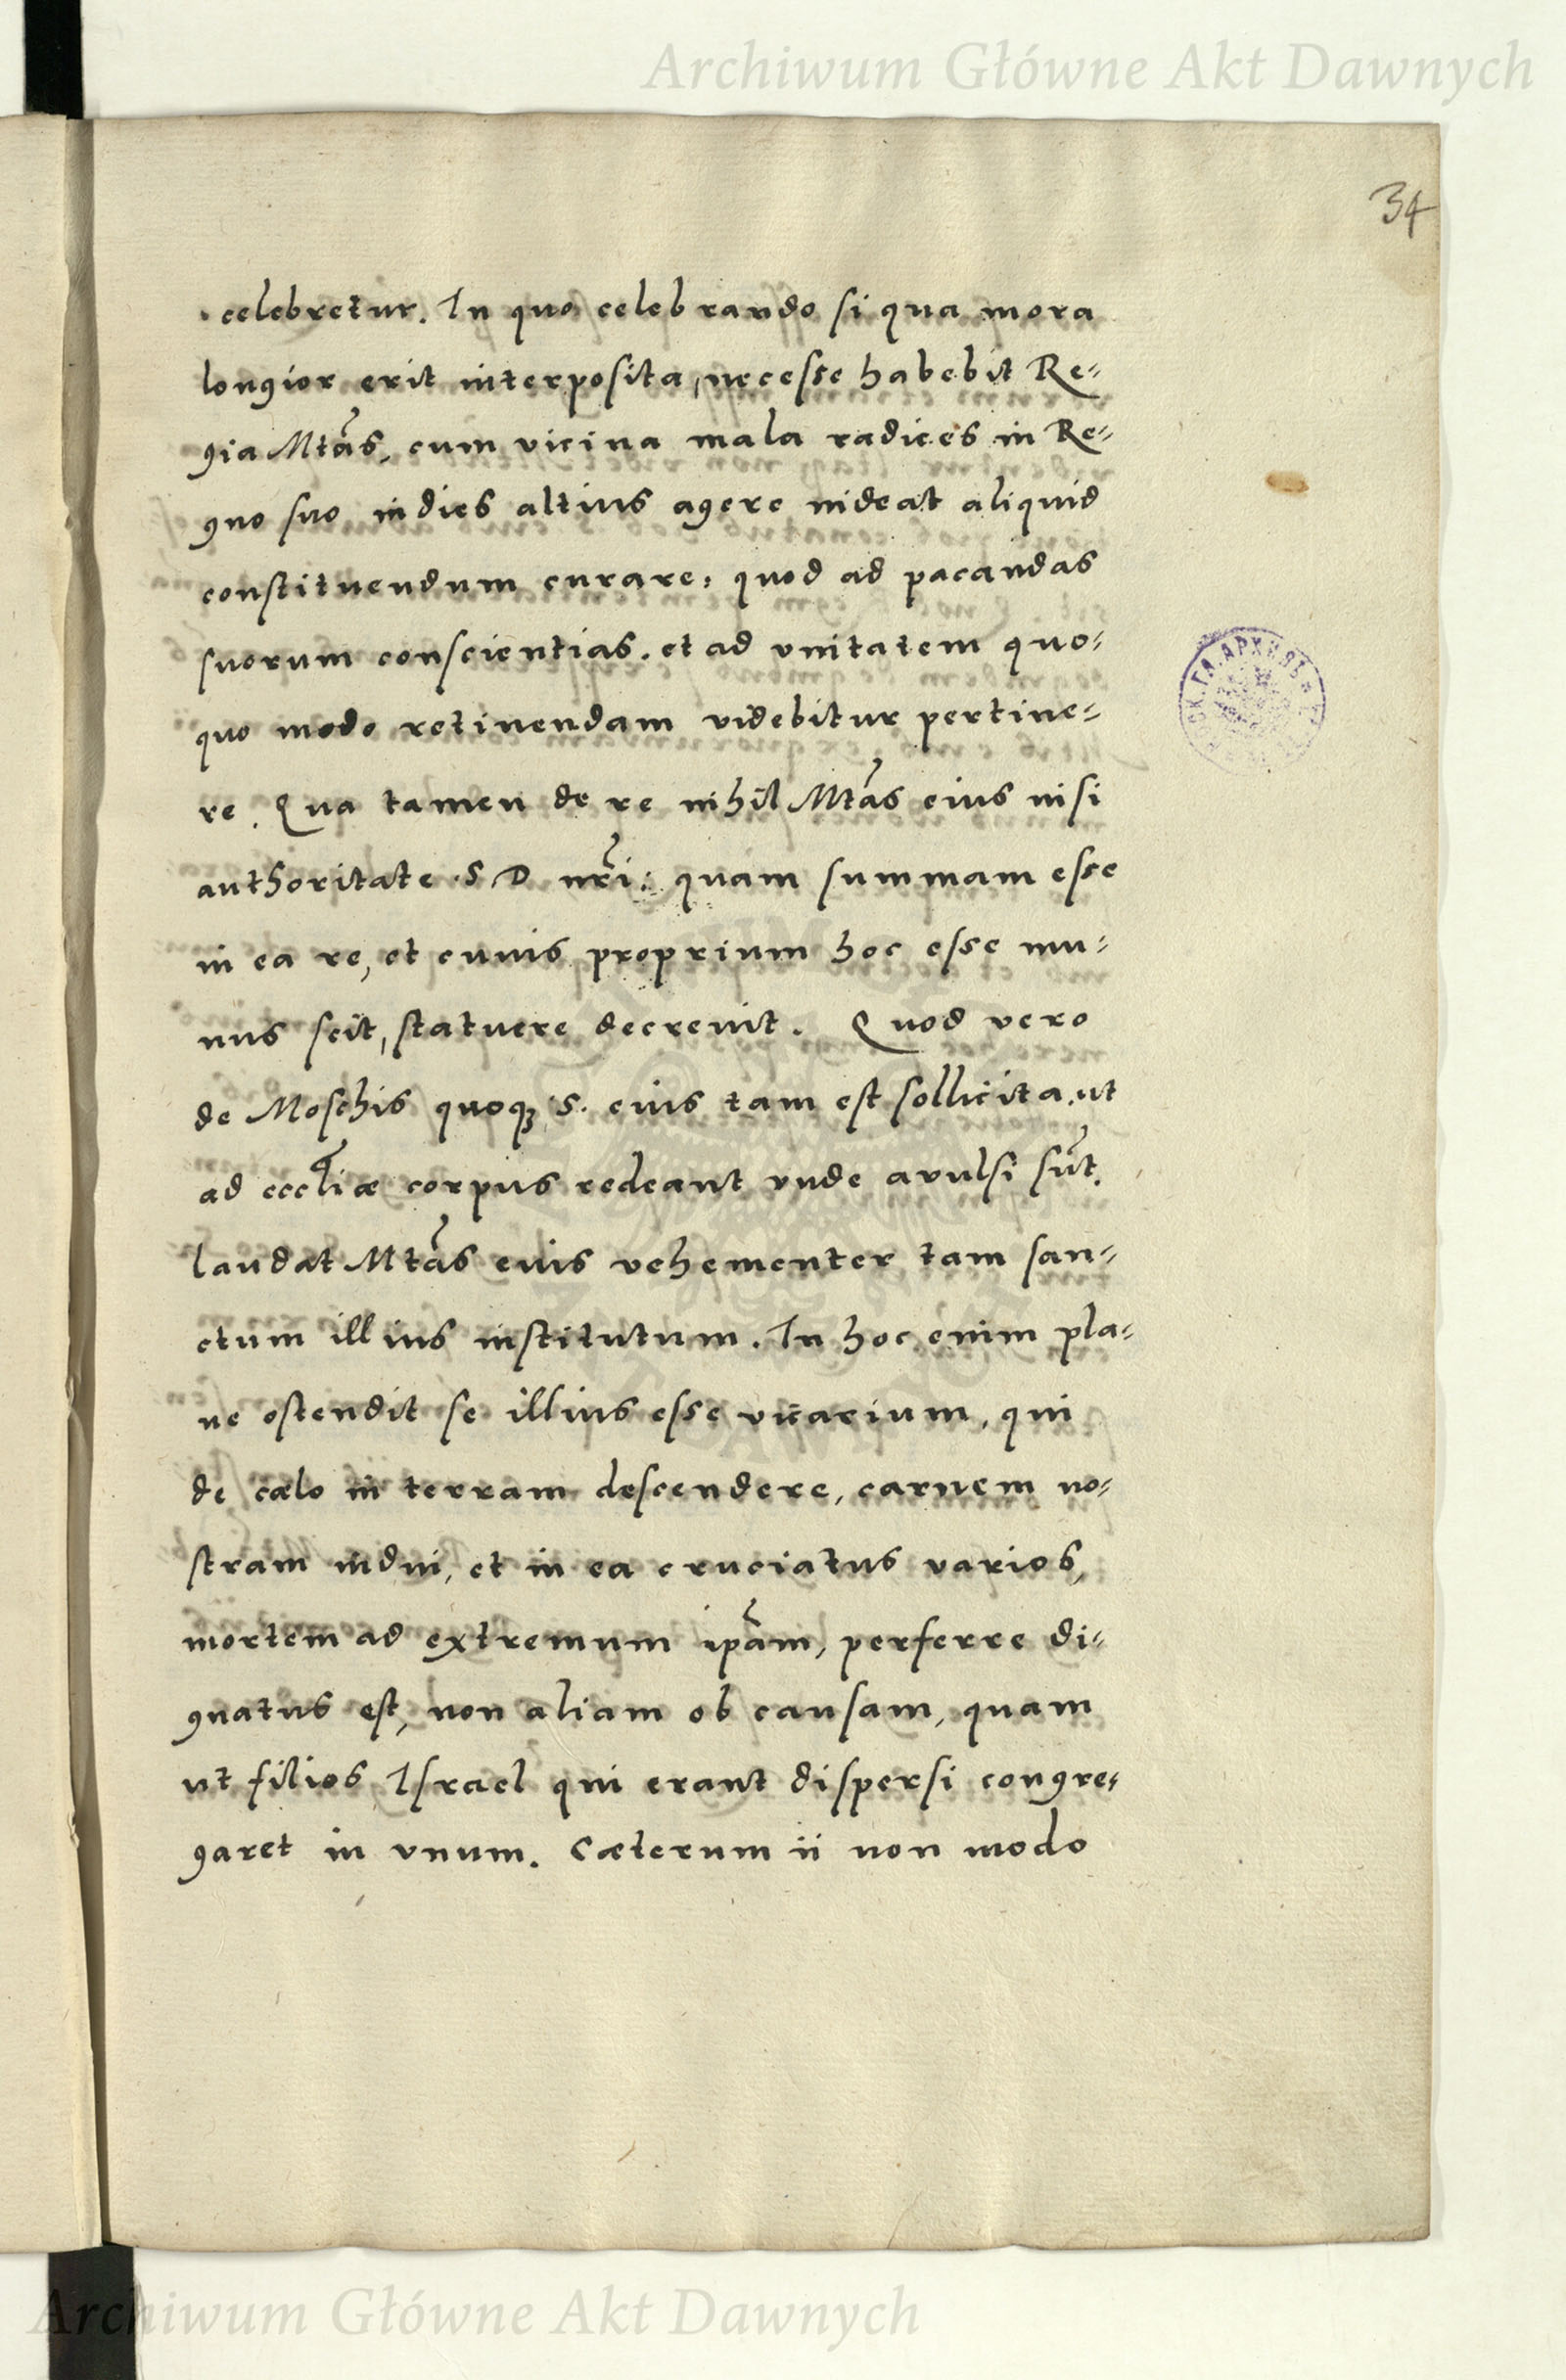 Archiwum Główne Akt Dawnych
34
celebretur. In quo celebrando si qua mora
longior erit interposita, necesse habebit Re-
gia Mtas, cum vicina mala radices in Re-
gno suo indies altius agere uideat aliquid
constituendum curare, quod ad pacandas
suorum conscientias, et ad vnitatem quo-
quo modo retinendam videbitur pertine-
re. Qua tamen de re nihil Mtas eius nisi
authoritate S D nri: quam summam esse
in ea re, et cuius proprium hoc esse mu-
nus scit, statuere decreuit. Quod vero
de Moschis quoq; S. eius tam est sollicita, ut
ad eccliæ corpus redeant vnde avulsi sut.
laudat Mtas eius vehementer tam san-
ctum illius institutum. In hoc enim pla-
ne ostendit se illius esse vicarium, qui
de cælo in terram descendere, carnem no-
stram indui, et in ea cruciatus varios,
mortem ad extremum ipam, perferre di-
gnatus est, non aliam ob causam, quam
vt filios Israel qui erant dispersi congre-
garet in vnum. Cæterum ii non modo
Archiwum Główne Akt Dawnych